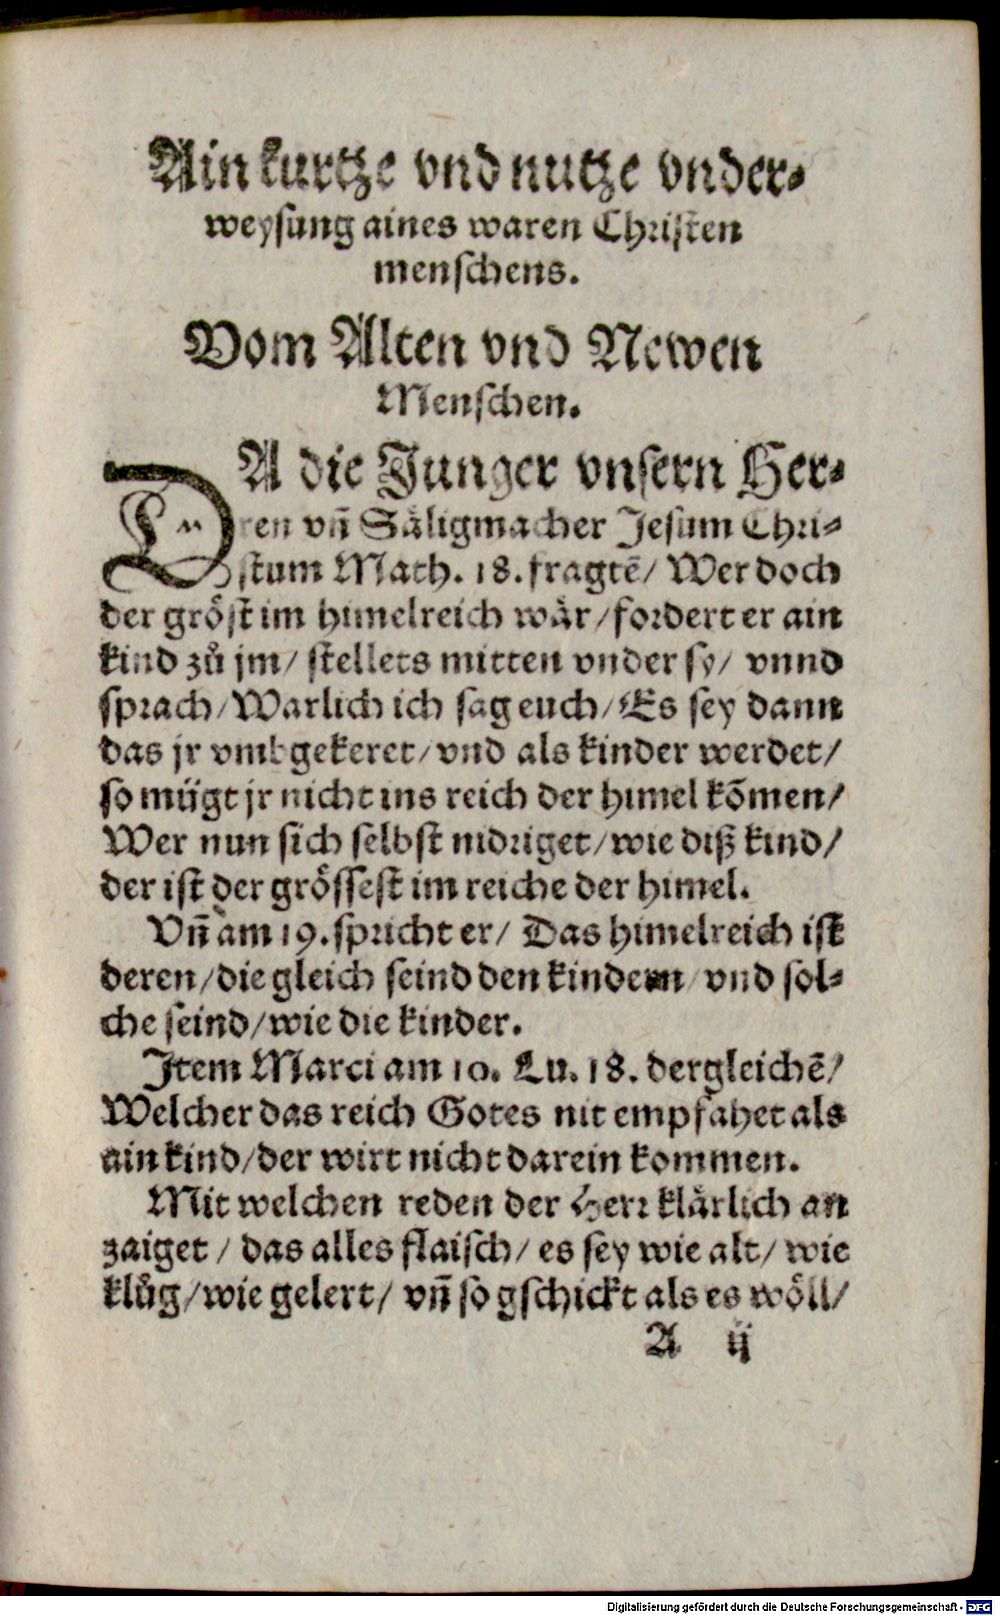 Ain kurtze vnd nutze vnder⸗
weysung aines waren Christen
menschens.
Vom Alten vnd Newen
Menschen.
DA die Junger vnsern Her⸗
ren vñ Säligmacher Jesum Chri⸗
stum Math. 18. fragtẽ / Wer doch
der gröst im himelreich wär / fordert er ain
kind zů jm / stellets mitten vnder sy / vnnd
sprach / Warlich ich sag euch / Es sey dann
das jr vmbgekeret / vnd als kinder werdet /
so mügt jr nicht ins reich der himel kõmen /
Wer nun sich selbst nidriget / wie diß kind /
der ist der grössest im reiche der himel.
Vñ am 19. spricht er / Das himelreich ist
deren / die gleich seind den kindern / vnd sol⸗
che seind / wie die kinder.
Jtem Marci am 10. Lu. 18. dergleichẽ /
Welcher das reich Gotes nit empfahet als
ain kind / der wirt nicht darein kommen.
Mit welchen reden der Herr klärlich an
zaiget / das alles flaisch / es sey wie alt / wie
klůg / wie gelert / vñ so gschickt als es wöll /
A ij
Digitalisierung gefördert durch die Deutsche Forschungsgemeinschaft - DFG